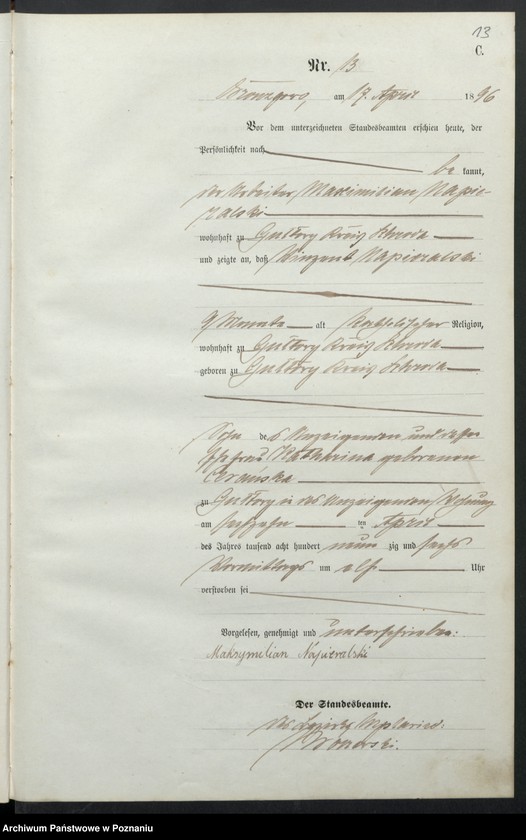 13
C.
Nr. 13
am 17. April 1896
Vor dem unterzeichneten Standesbeamten erschien heute, der
Persönlichkeit nach
be kannt,
der Arbeiter Maximilian Napie-
ralski
wohnhaft zu Gultowy Kreis Schroda
und zeigte an, daß Vinzent Napieralski
9 Monate alt Katholischer Religion,
wohnhaft zu Gultowy Kreis Schroda
geboren zu Gultowy Kreis Schroda
Sohn des Anzeigenden und dessen
Ehefrau Katharina geborenen
zu Gultowy in des Anzeigenden Wohnung
am sechzehn ten April
des Jahres tausend acht hundert neun zig und sechs
Vormittags um elf Uhr
verstorben sei
Vorgelesen, genehmigt und unterschrieben:
Maksymilian Napieralski
Der Standesbeamte.
Archiwum Państwowe w Poznaniu